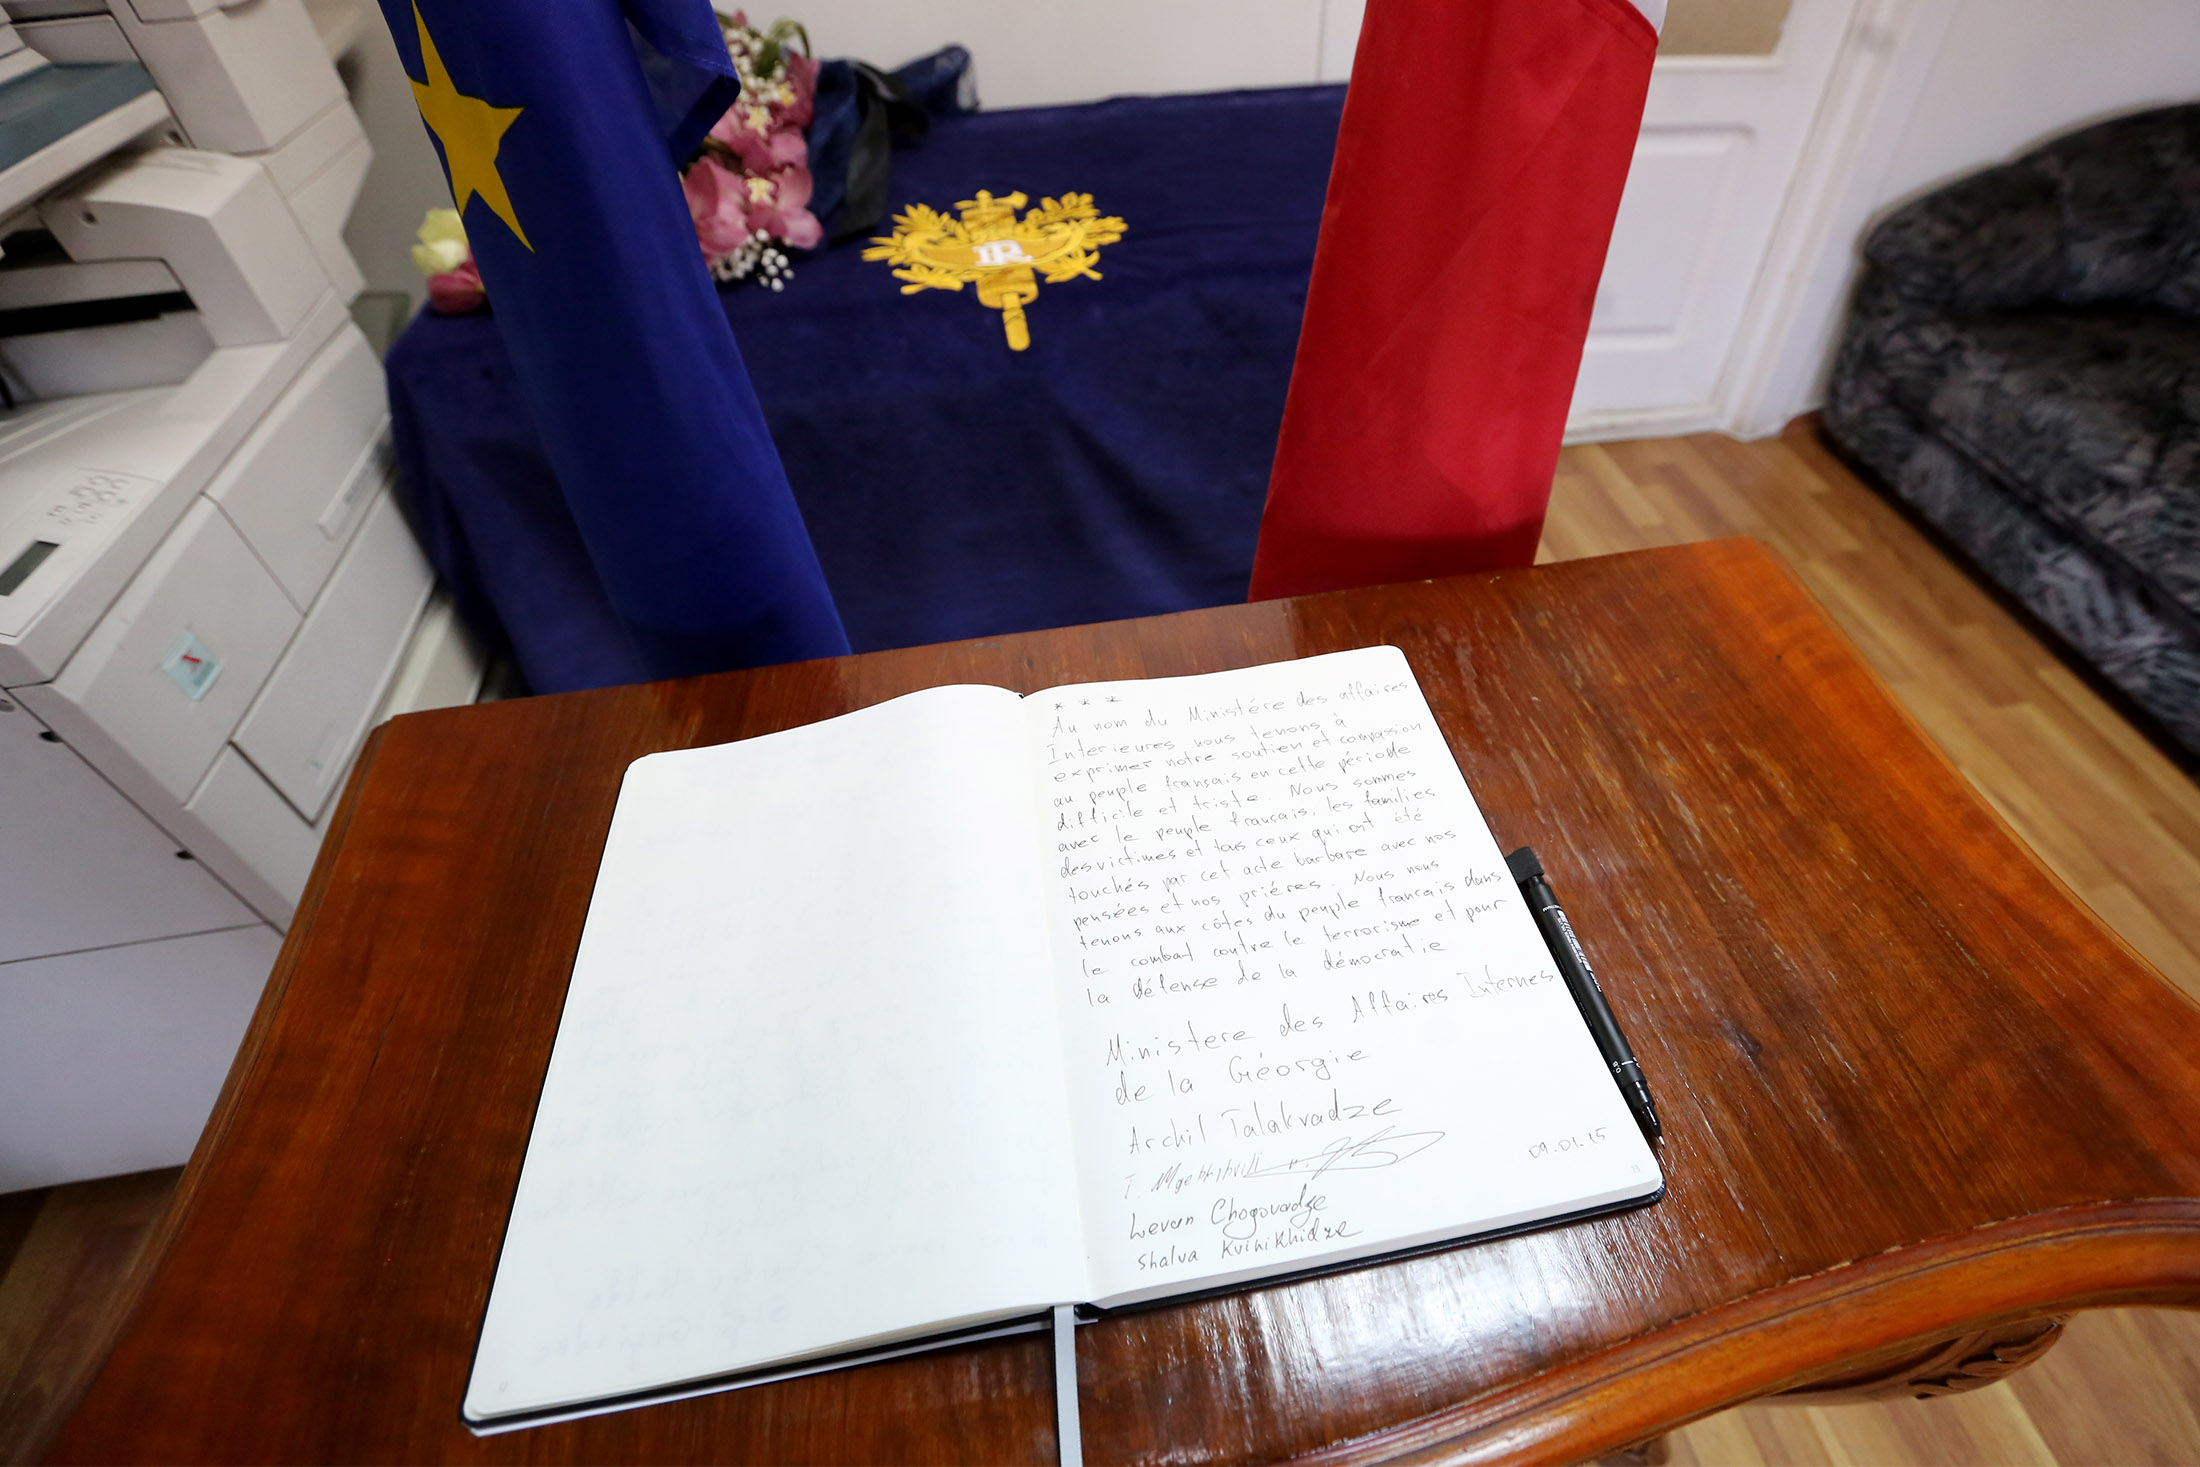 RF
* * *
Au nom du Ministére des affaires
Interieures nous tenons à
exprimer notre soutien et compassion
au peuple français en cette période
difficile et triste. Nous sommes
avec le peuple français, les familles
des victimes et tous ceux qui ont été
touchés par cet acte barbare avec nos
pensées et nos priéres. Nous nous
tenons aux côtés du peuple français dans
le combat contre le terrorisme et pour
la défense de la démocratie
Ministere des Affaires Internes
de la Géorgie
Archil Talakvadze
Levan Chogovadze
Shalva Kvinikhidze
09.01.15
13